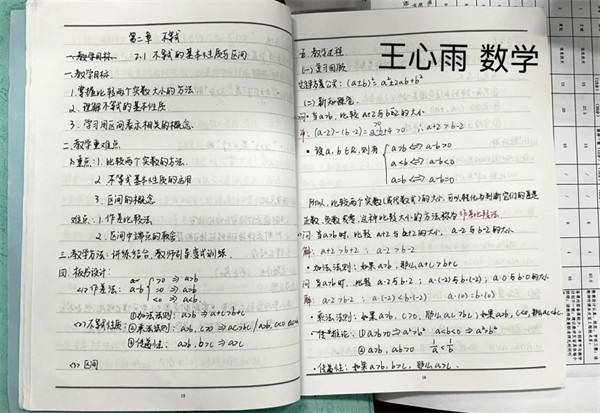 第二章 不等式
一、教学目标 2.1 不等式的基本性质与区间
一.教学目标
1.掌握比较两个实数大小的方法
2.理解不等式的基本性质
3.学习用区间表示相关的概念.
二.教学重难点
1.重点:1.比较两个实数的方法.
2.不等式基本性质的运用
3.区间的概念
难点:1.作差比较法
2.区间中端点的教学
三.教学方法:讲练结合,教师引导变式训练.
四.板书设计:
<1>作差法: a-b { >0 ⇒ a>b
=0 ⇒ a=b
<0 ⇒ a<b
①加法法则: a>b ⇒ a+c>b+c
<2>不等式性质: ②乘法法则: a>b, c>0 ⇒ ac>bc / a>b, c<0
③传递性: a>b, b>c ⇒ a>c
<3> 区间
18
王心雨 数学
五.教学过程
(一)复习回顾
完全平方公式: (a±b)²=a²±2ab+b²
(二)新知概念.
问:当a>b, 比较 a+2与b-2的大小
(a+2)-(b-2)=a-b+4>0 ∴a+2>b-2
• 设a,b∈R,则有 { a>b⇔a-b>0
a<b⇔a-b<0
a=b⇔a-b=0
所以,比较两个实数(或代数式)的大小,可以转化为判断它们的差是
正数,负数或零,这种比较大小的方法称为作差比较法.
问:当a>b时,比较 a+2与b+2的大小, a-2与b-2的大小
解: a+2>b+2 ; a-2>b-2
• 加法法则:如果a>b,那么a+c>b+c
问:当a>b时,比较 a·2与b·2 ; a·(-2)与b·(-2) ; a·0与b·0的大小
解: a·2>b·2 ; a·(-2)<b·(-2) a·(0)=b·(0)
• 乘法法则:如果a>b, c>0,那么ac>bc;如果a>b, c<0,那么ac<bc.
①a>b>0 ⇒ a²>b² a<b<0 ⇒ a²>b²
②a>b, ab>0 1/a<1/b
• 传递性:如果a>b, b>c,那么a>c.
19